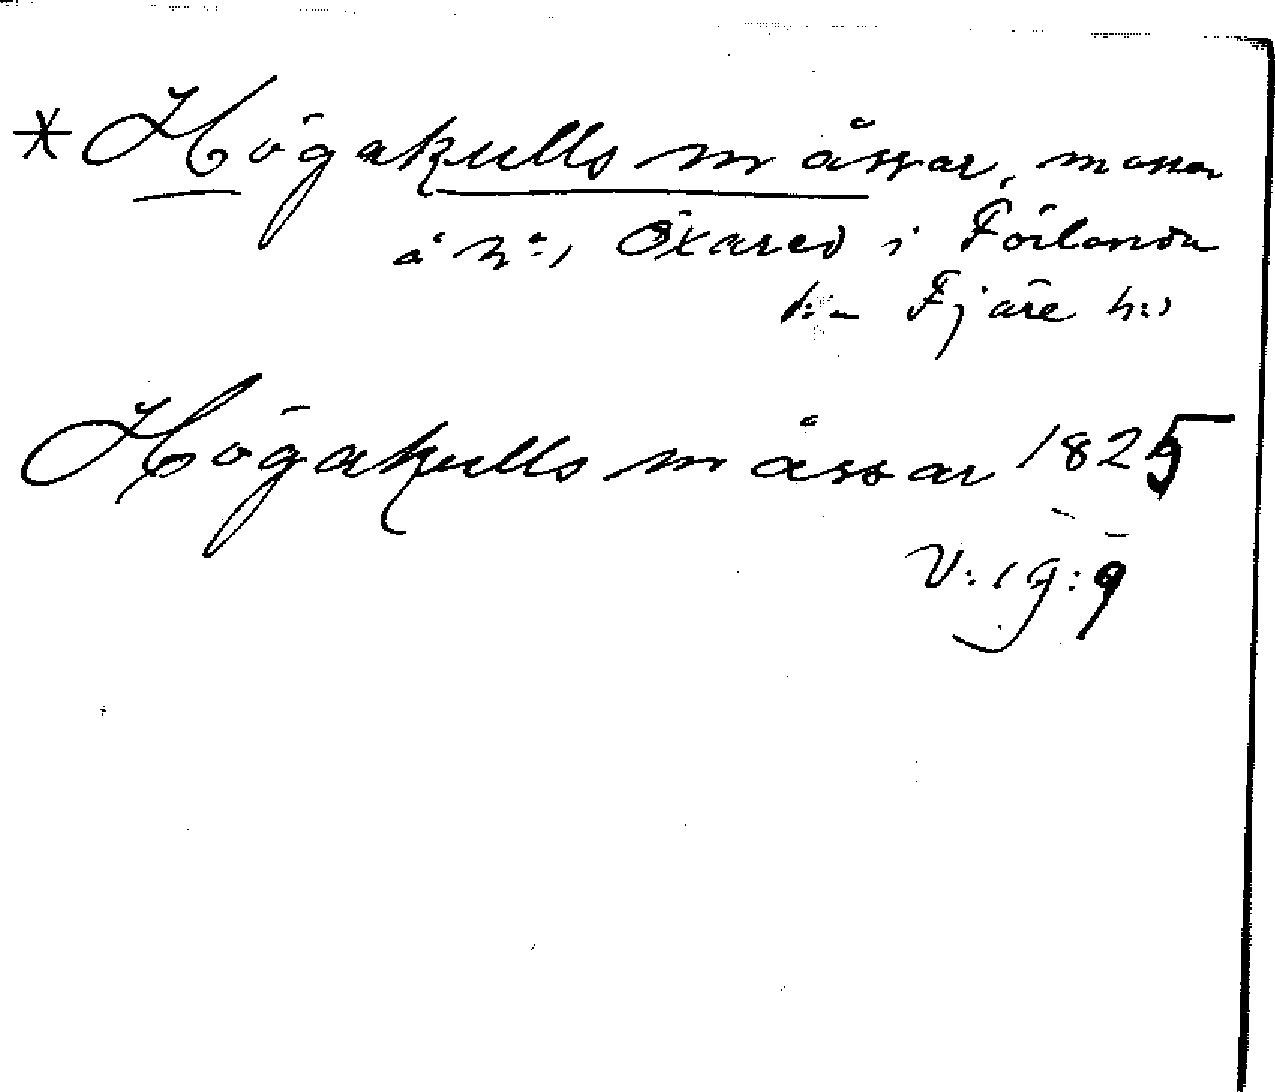 * Högakulls måssar, mossar
å h:, Öxared i Förlanda
Fjäre h:d
Högakulls måssar 1825
V: 19: 9